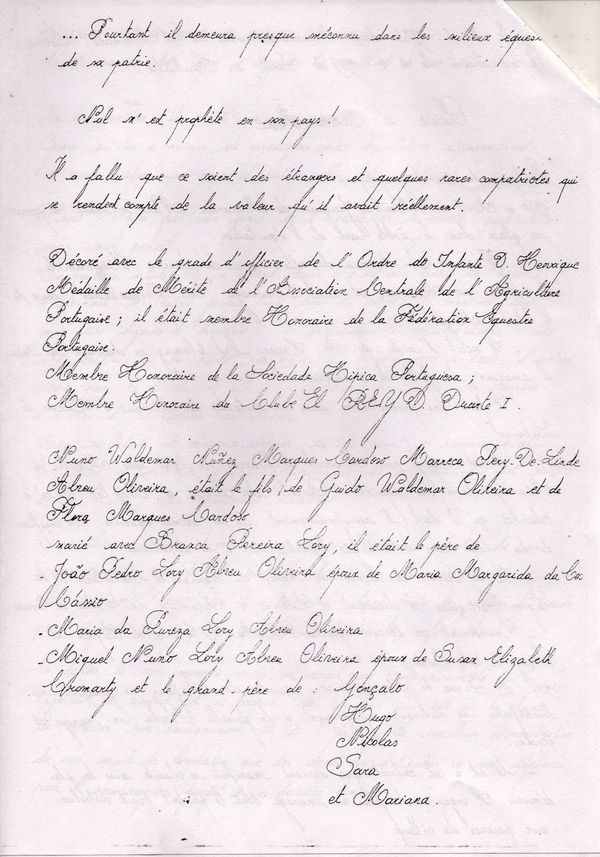 ... Pourtant il demeura presque méconnu dans les milieux éques
de sa patrie.
Nul n'est prophète en son pays!
Il a fallu que ce soient des étrangers et quelques rares compatriotes qui
se rendent compte de la valeur qu'il avait réellement.
Décoré avec le grade d'officier de l'Ordre do Infante D. Henrique
Médaille de Mérite de l'Association Centrale de l'Agriculture
Portugaise; il était membre Honoraire de la Fédération Equestre
Portugaise.
Membre Honoraire de la Sociedade Hipica Portuguesa;
Membre Honoraire du Clube El REY D. Duarte I.
Nuno Waldemar Nuñez Marques Cardoso Marreca Pery. De. Linde
Abreu Oliveira, était le fils de Guido Waldemar Oliveira et de
Flora Marques Cardoso
marié avec Branca Pereira Lory, il était le père de
- João Pedro Lory Abreu Oliveira époux de Maria Margarida da Cos
Cássio
- Maria da Pureza Lory Abreu Oliveira
- Miguel Nuno Lory Abreu Oliveira époux de Susan Elizabeth
Cromarty et le grand-père de : Gonçalo
Hugo
Nicolas
Sara
et Mariana.